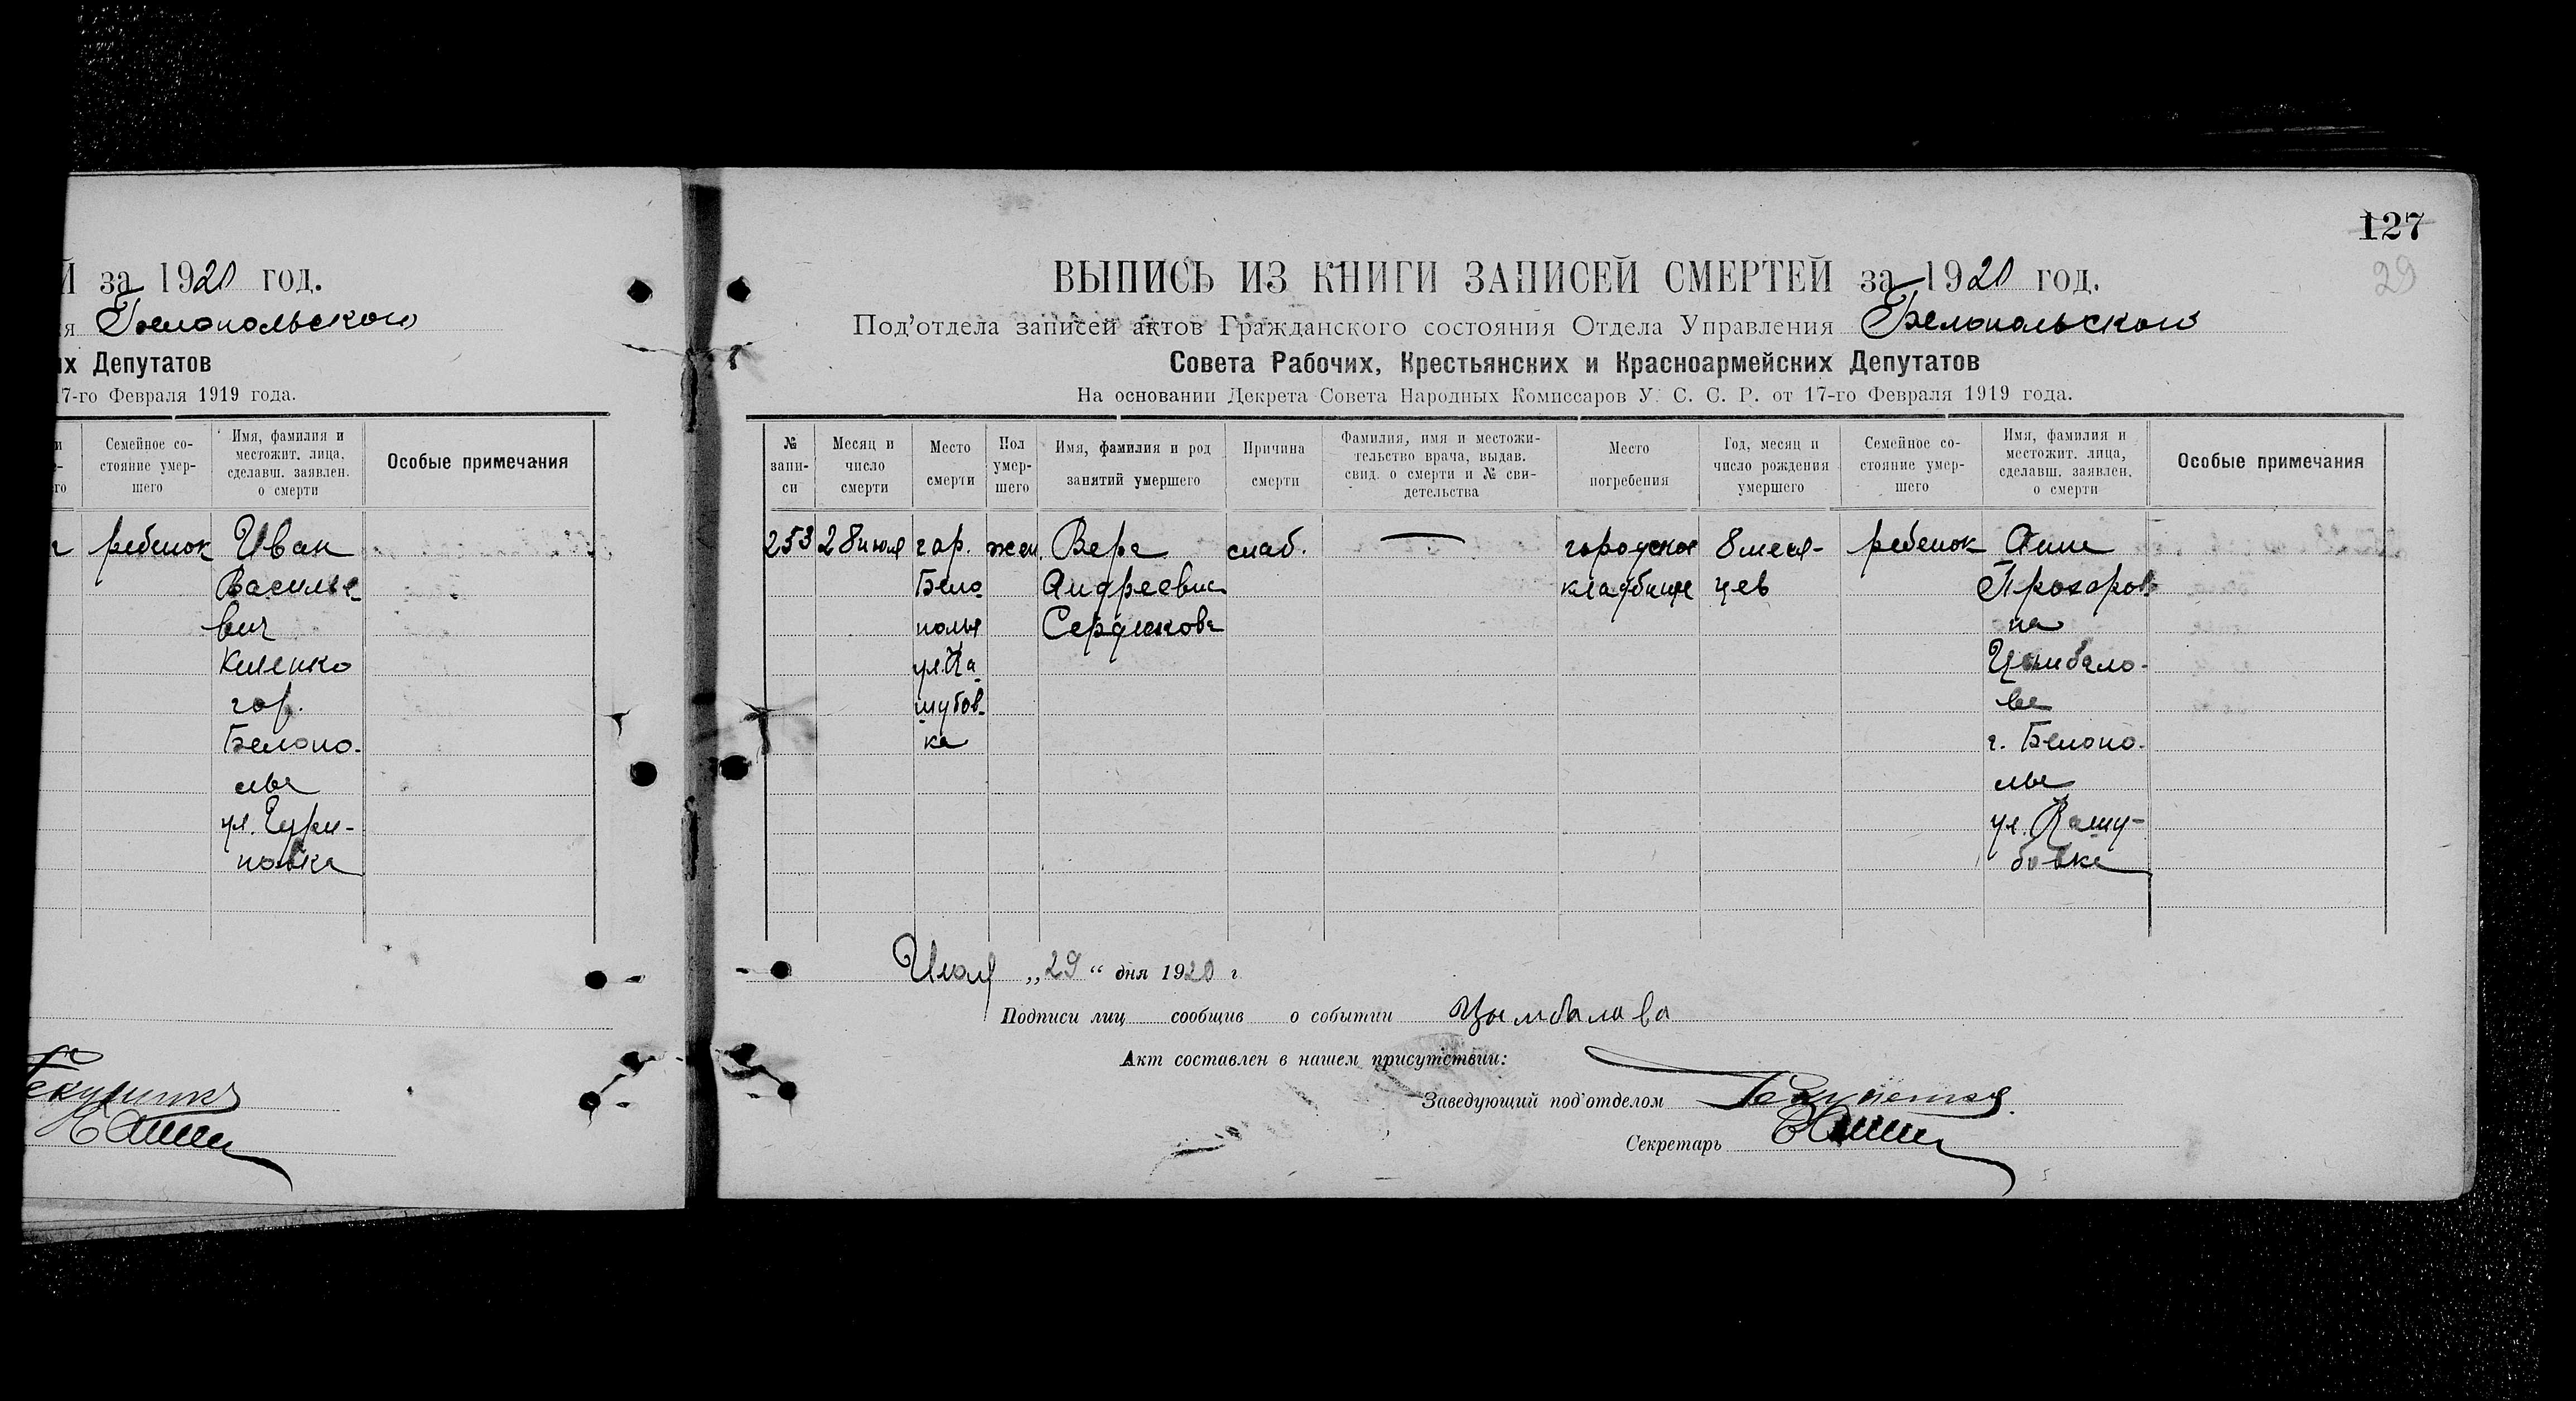 Й за 1920 год.
я Белопольского
их Депутатов
17-го Февраля 1919 года.
Семейное со-
стояние умер-
шего
Имя, фамилия и
местожит. лица,
сделавш. заявлен.
о смерти
Особые примечания
ребенок Иван
Василье-
вич
Киленко
гор.
Белопо-
лье
ул.
новка
127
29
ВЫПИСЬ ИЗ КНИГИ ЗАПИСЕЙ СМЕРТЕЙ за 1920 год.
Под'отдела записей актов Гражданского состояния Отдела Управления Белопольского
Совета Рабочих, Крестьянских и Красноармейских Депутатов
На основании Декрета Совета Народных Комиссаров У. С. С. Р. от 17-го Февраля 1919 года.
№
запи-
си
Месяц и
число
смерти
Место
смерти
Пол
умер-
шего
Имя, фамилия и род
занятий умершего
Причина
смерти
Фамилия, имя и местожи-
тельство врача, выдав.
свид. о смерти и № сви-
детельства
Место
погребения
Год, месяц и
число рождения
умершего
Семейное со-
стояние умер-
шего
Имя, фамилия и
местожит. лица,
сделавш. заявлен.
о смерти
Особые примечания
253 28 июля гор. жен. Вера слаб. — городское 8 меся- ребенок Анна
Бело Андреевна кладбище цев Прохоров-
полье Сердюкова на
ул. Ка Цымбало-
шубов- ва
ка г. Белопо-
лье
ул. Кашу-
бовка
Июля „29“ дня 1920 г
Подписи лиц сообщив о событии Цымбалава
Акт составлен в нашем присутствии:
Заведующий под'отделом
Секретарь